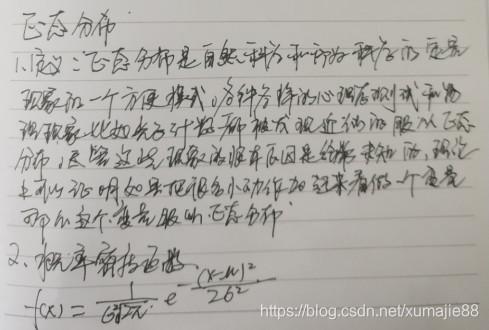 正态分布
1.定义：正态分布是自然科学和行为科学的定量
现象的一个方便模式，各种各样的心理学测试和物
理现象比如光子计数都被发现近似的服从正态
分布，尽管这些现象的根本原因是经常未知的，理论
上可以证明如果把很多小动作加起来看做一个变量
那么这个变量服从正态分布
2、概率密度函数
f(x) = 1/(σ√2π) e^-(x-μ)²/2σ²
https://blog.csdn.net/xumajie88